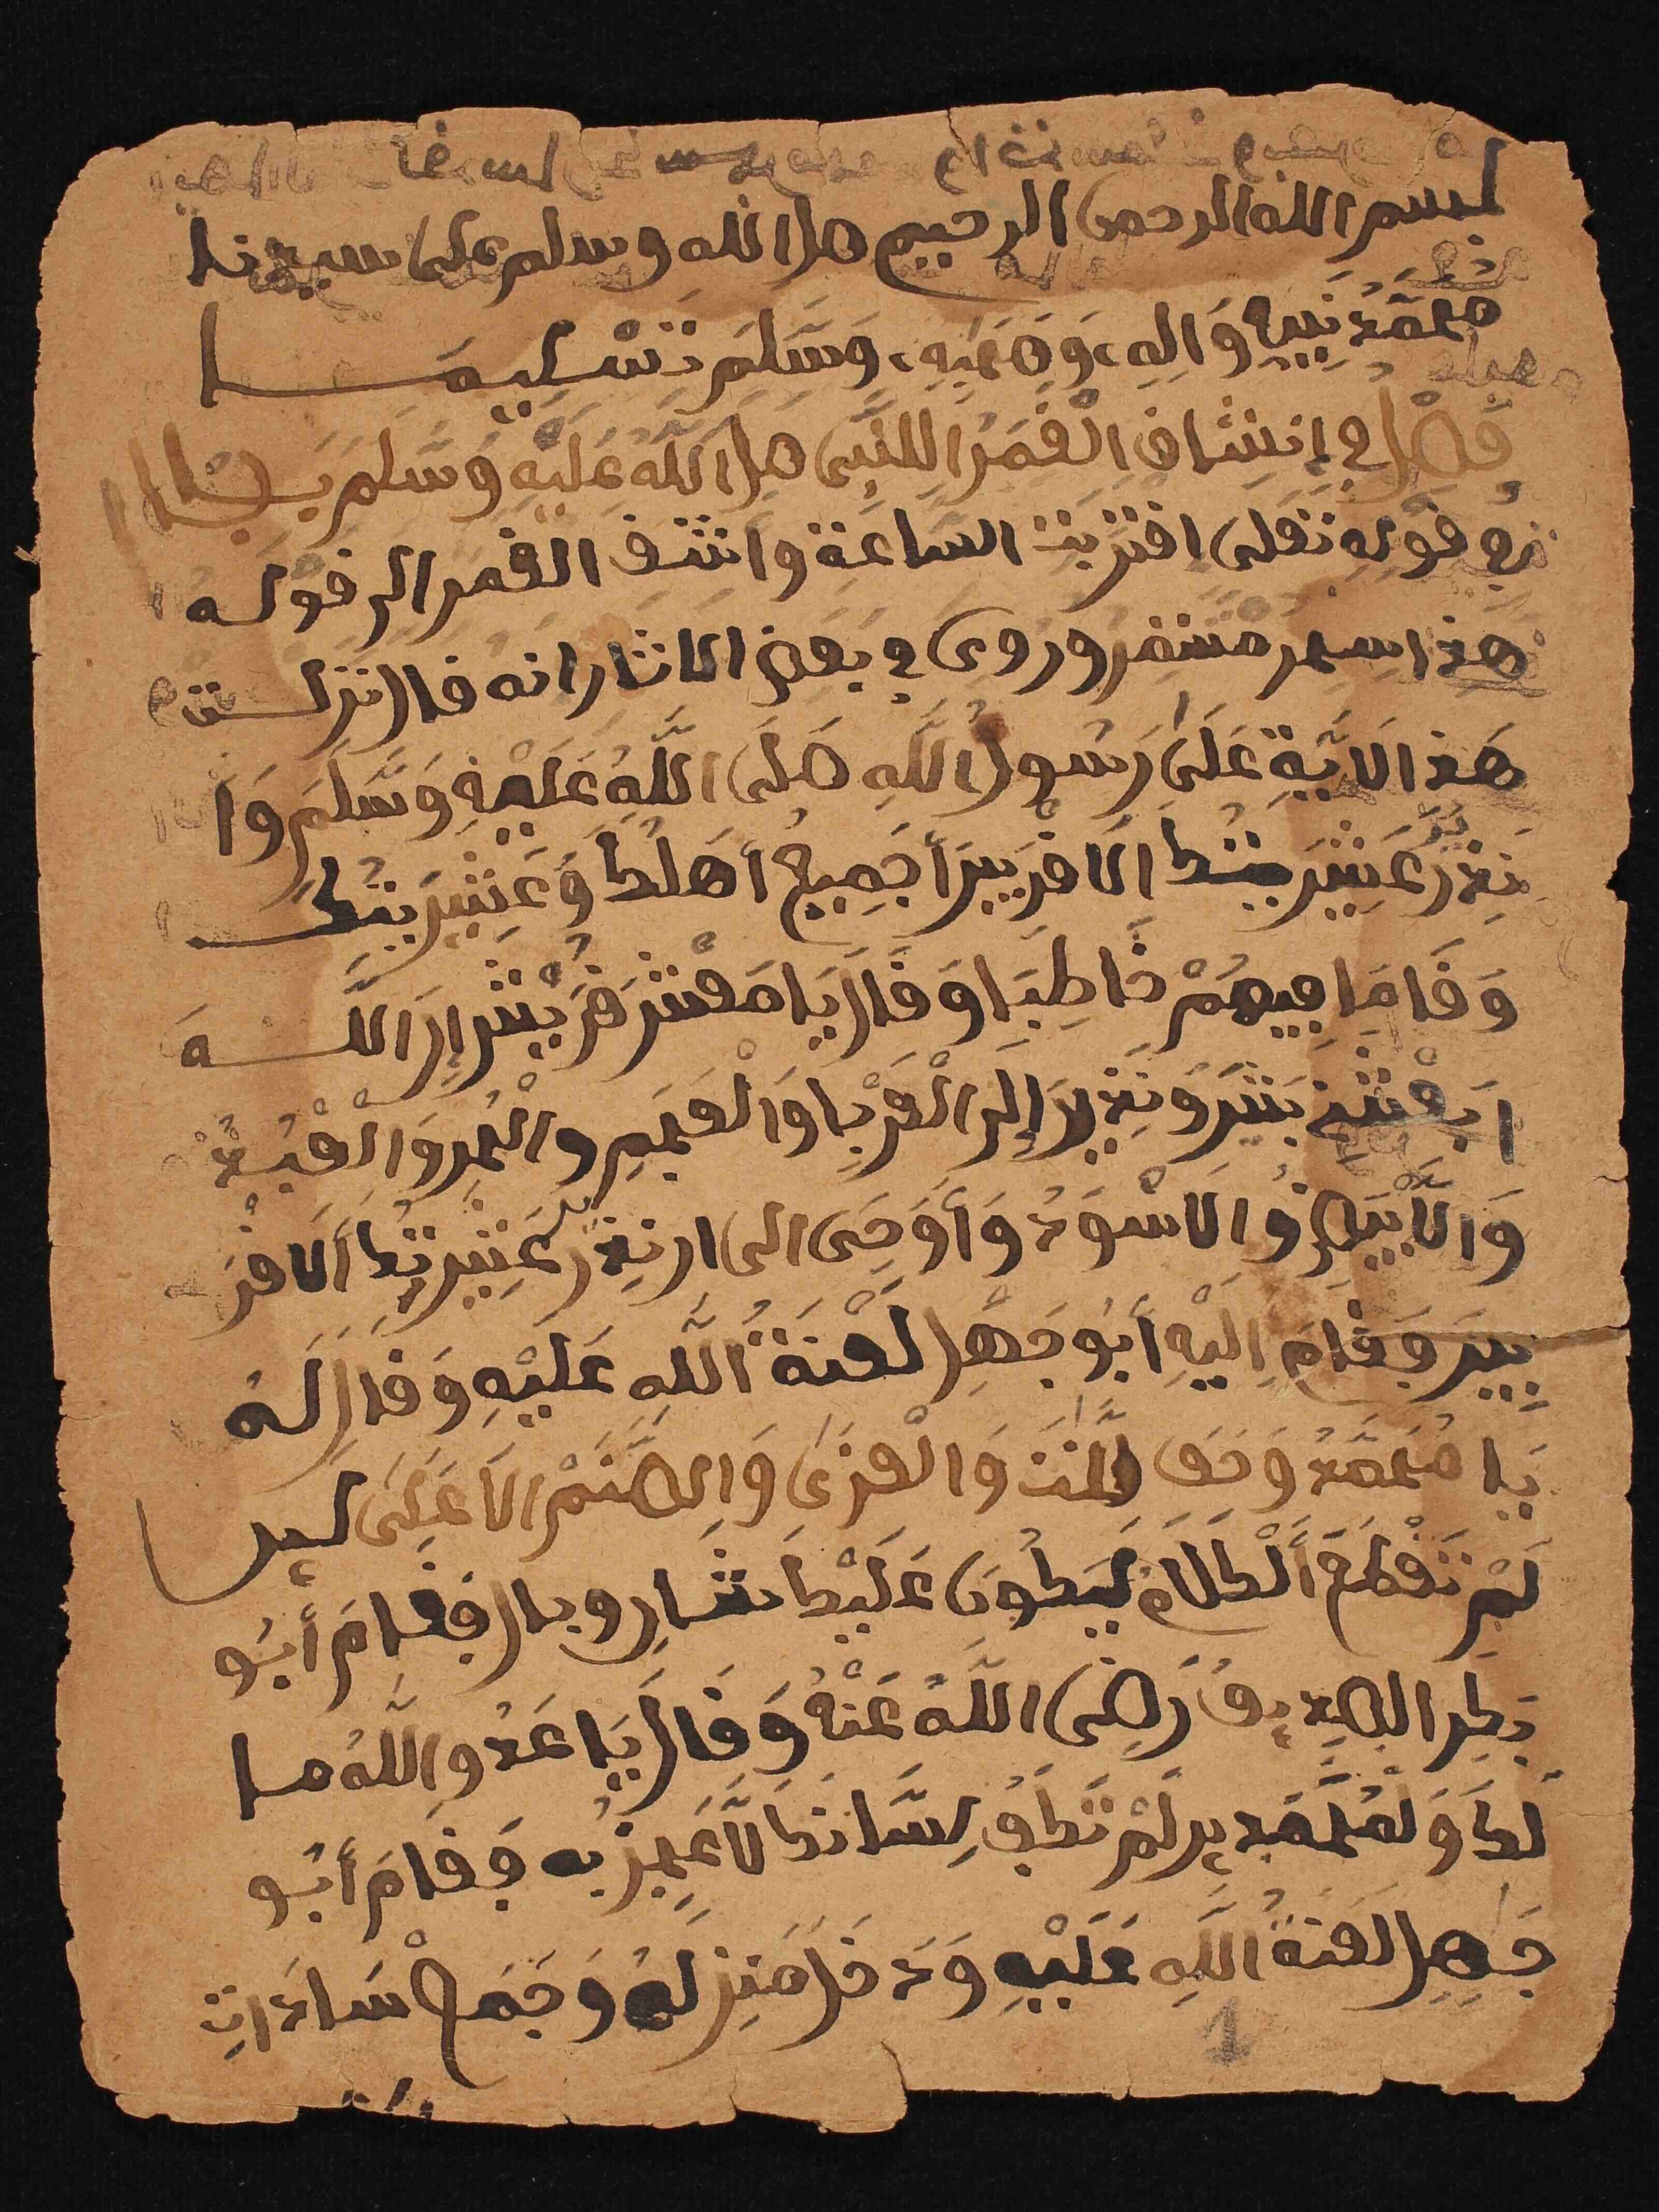 بسم الله الرحمن الرحيم صلى الله وسلم على سيدنا
محمد نبيه واله وصحبه وسلم تسليما
فصل في انشاق القمر للنبي صلى الله عليه وسلم
في قوله تعلى اقتربت الساعة وانشق القمر الى قوله
هذا سحر مستمر وروي في بعض الاثار انه قال نزلت
هذ الاية على رسول الله صلى الله عليه وسلم وا
نذر عشيرتك الاقربين أجميع أهلك وعشيرتك
وقاما فيهم خاطبا وقال يا معشر قريش ان الله
ابعثني بشر ونذيرا إلى العربي والعجمي والحر والعبد
والأبيض والاسود وأوحى الى ان نذر عشيرتك ألاقر
بين وقام اليه أبو جهل لعنة الله عليه وقال له
يا محمد وحق اللت والعزى والصنم الاعلى لين
لم تقطع ألكلام ليكون علينا شار وبال فقام أبو
بكر الصديق رضي الله عنه وقال يا عدو الله ما
لك ولمحمد ين لم تكف لسانك لا وقام أبو
جهل لعنة الله عليه ودخل منزله وجمع سادات
1